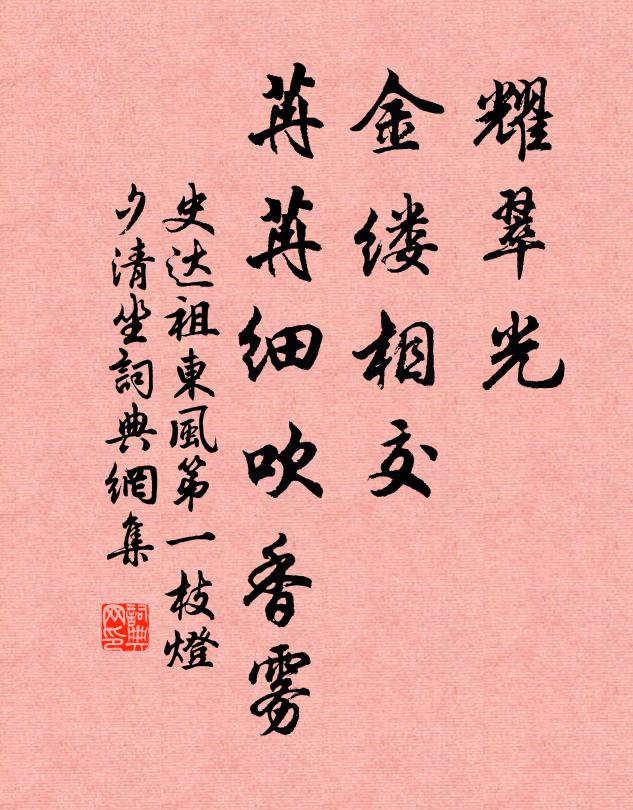 耀翠光
金缕相交
苒苒细吹香雾
史达祖東風第一枝燈
夕清坐詞典網集
詞典网印